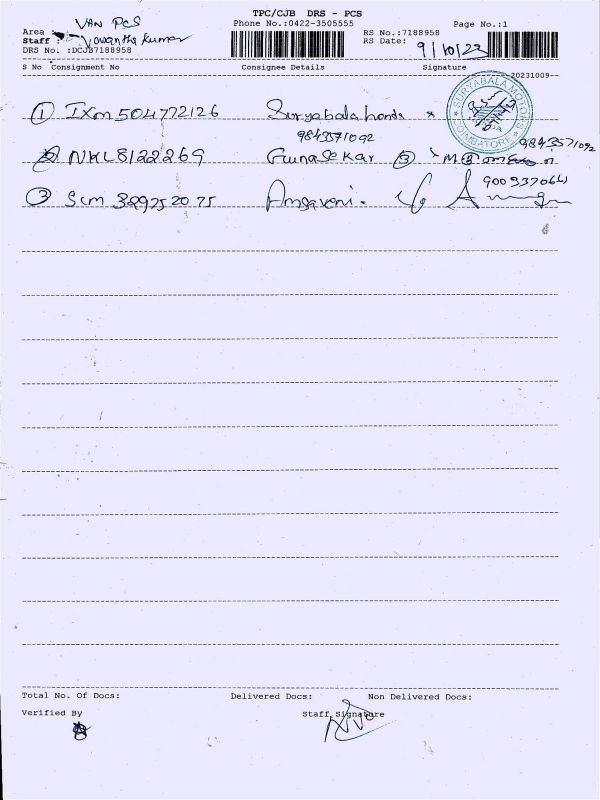 TPC/CJB DRS - PCS
Phone No.:0422-3505555
Page No.:1
Area : VAN PCS
Staff : Kumar
DRS No. :DCJB7188958
RS No.:7188958
RS Date: 9/10/23
S No Consignment No Consignee Details Signature
20231009
1 IXM 504772126 Suryabala honda
SURYABALA MOTORS
COIMBATORE
9843571092
2 NKL8122269 Gunasekar 3
9843571092
3 SCM 329752075 Amsaveni.
Total No. Of Docs: Delivered Docs: Non Delivered Docs:
Verified By Staff Signature